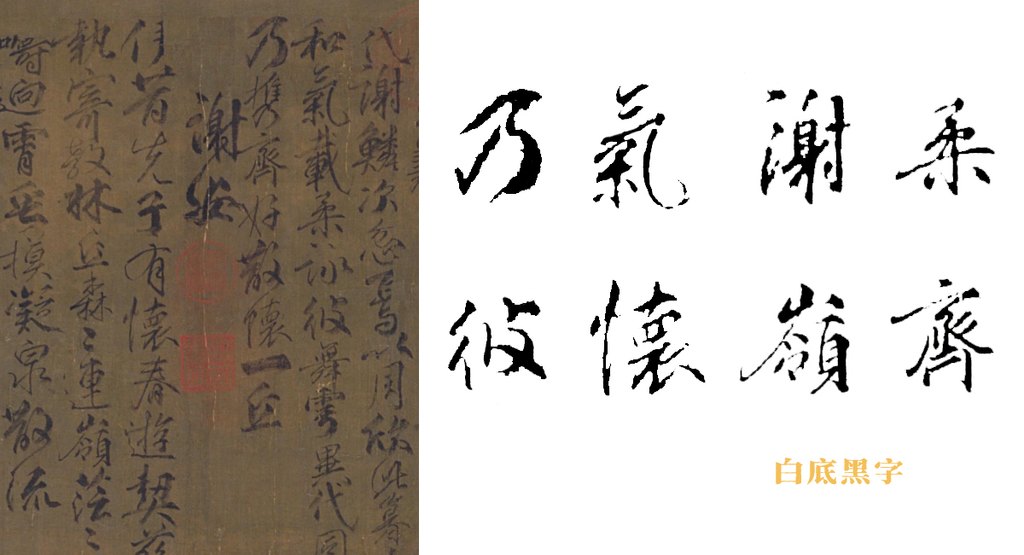 代謝鱗次忽焉以周欣此暮
和氣載柔詠彼舞雩異代同
乃携齊好散懷一丘
謝安
伊昔先子有懷春遊契茲
執寄敖林丘森〻連嶺茫〻
疇迥霄垂凝泉散流
乃 氣 謝 柔
彼 懷 嶺 齊
白底黑字